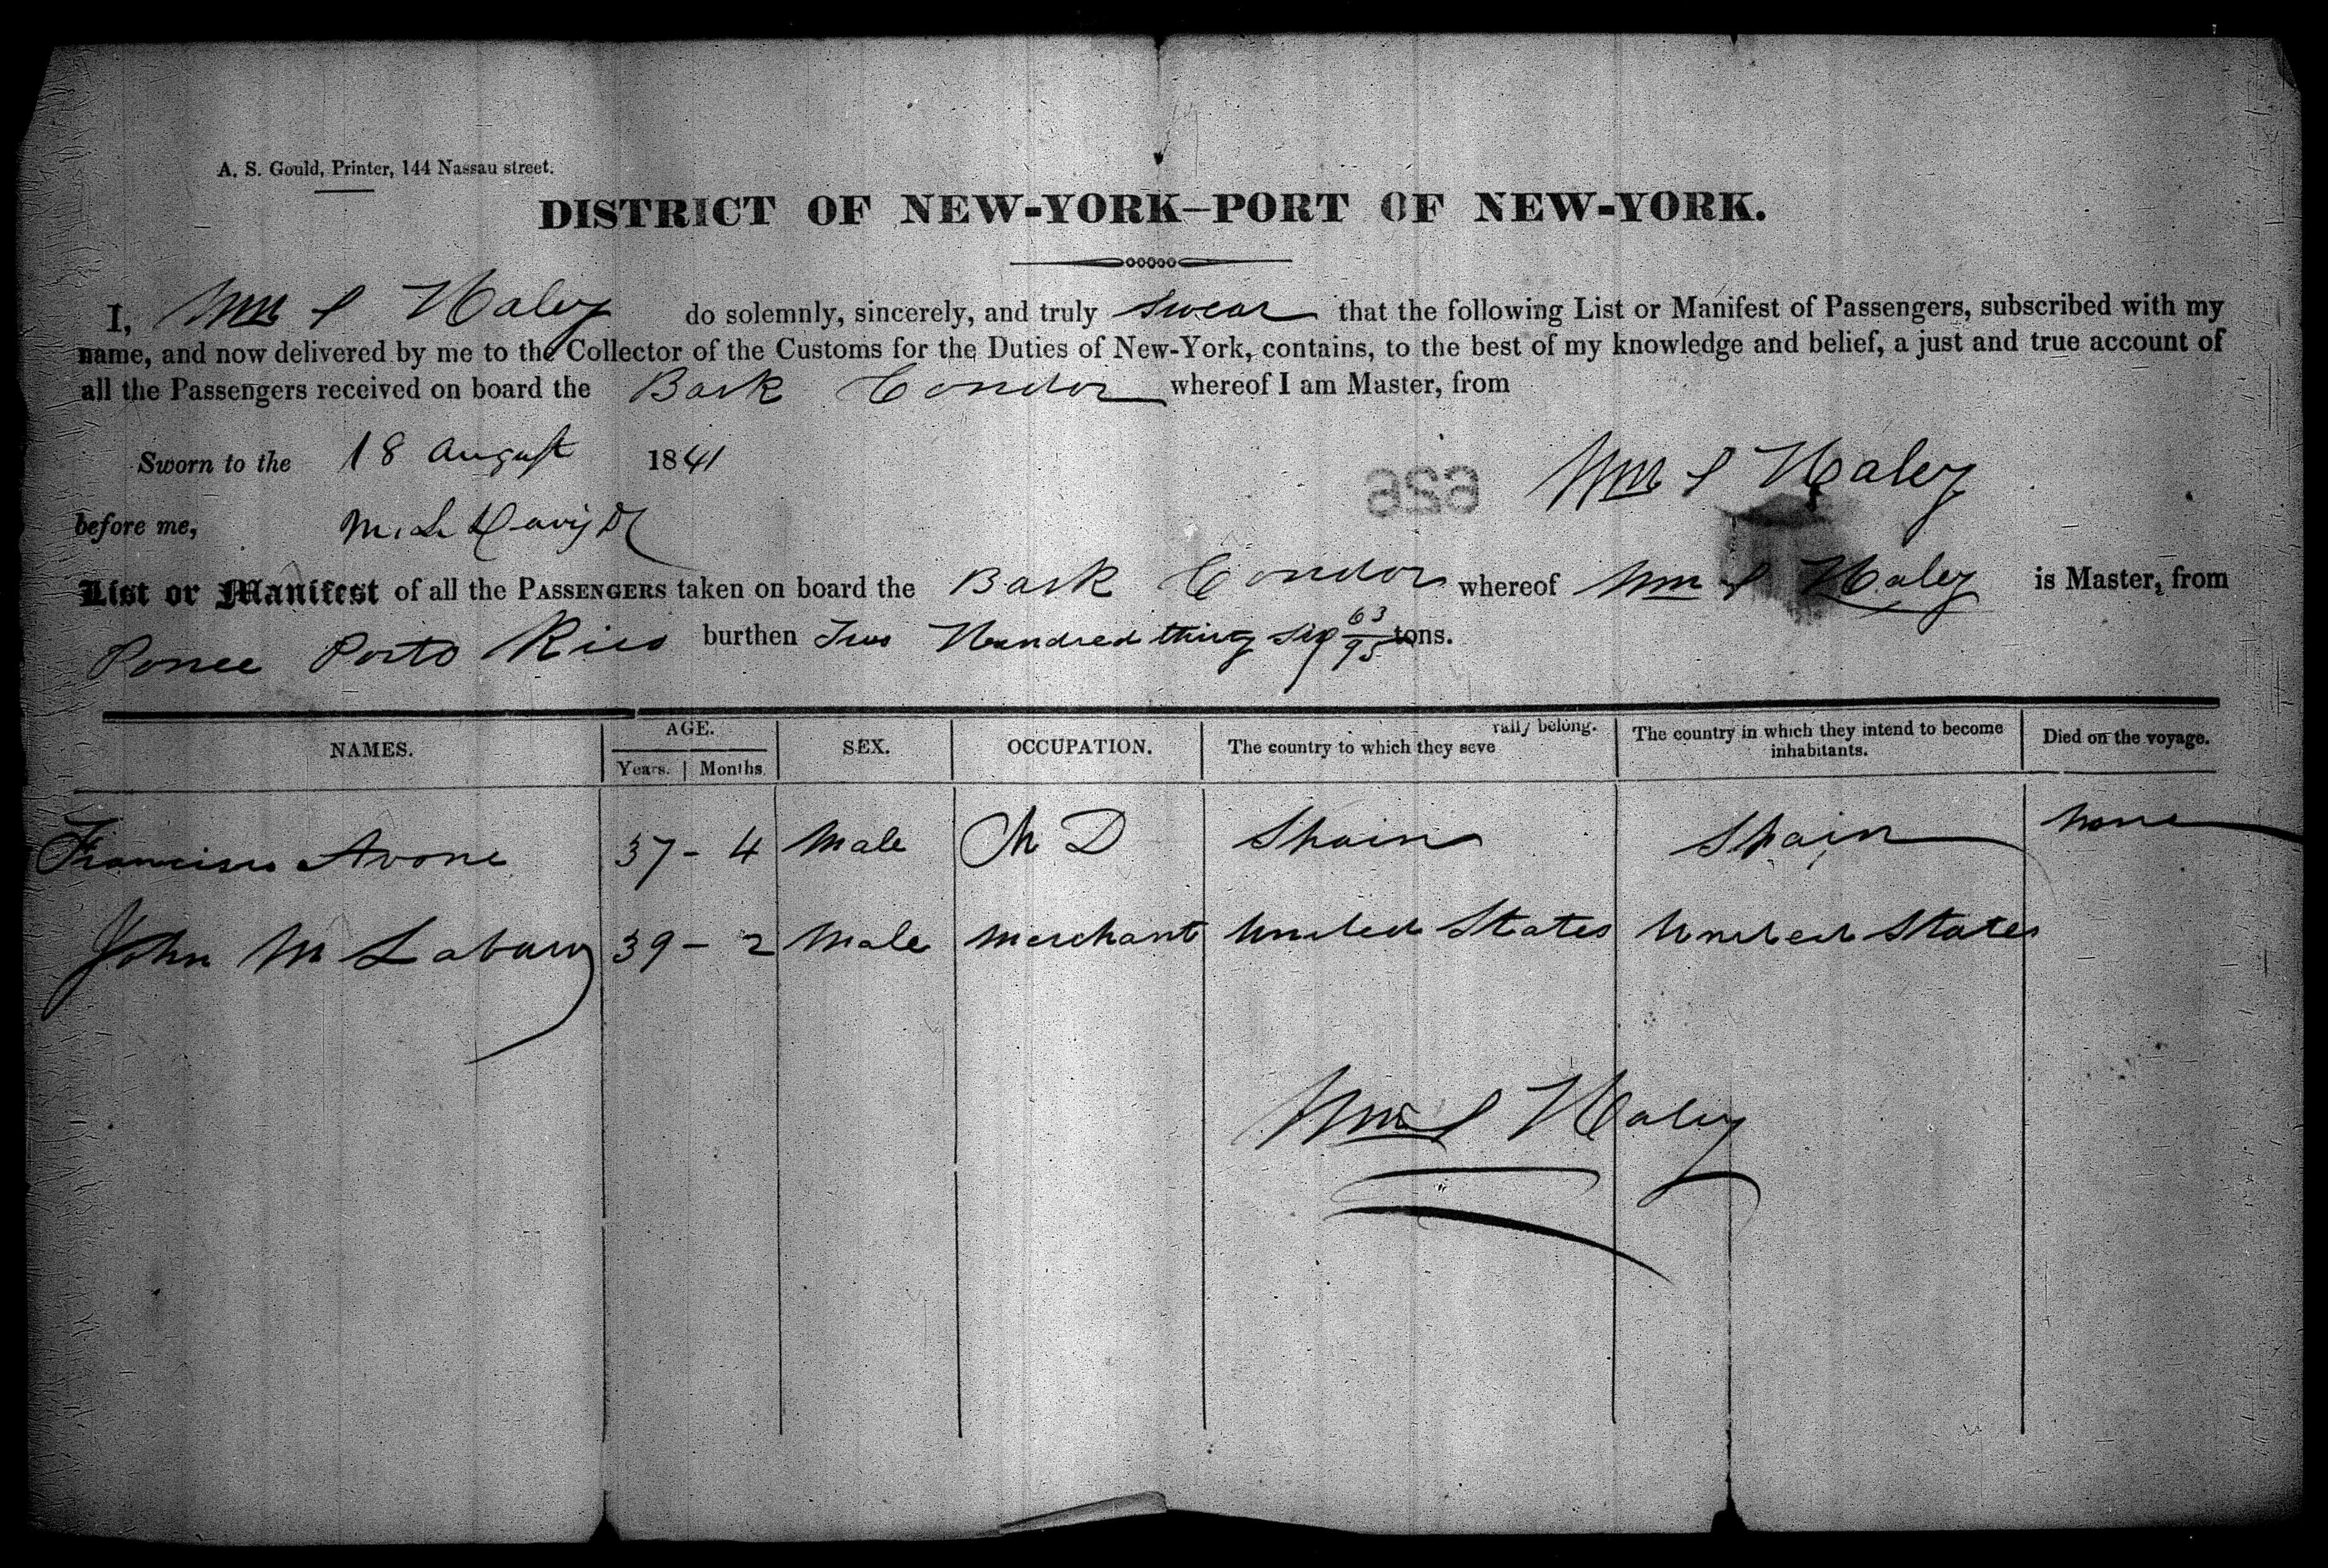 A. S. Gould, Printer, 144 Nassau street.
DISTRICT OF NEW-YORK—PORT OF NEW-YORK.
I, Wm S Haley do solemnly, sincerely, and truly swear that the following List or Manifest of Passengers, subscribed with my
name, and now delivered by me to the Collector of the Customs for the Duties of New-York, contains, to the best of my knowledge and belief, a just and true account of
all the Passengers received on board the Bark Condor whereof I am Master, from
Sworn to the 18 August 1841
Wm S Haley
before me,
List or Manifest of all the PASSENGERS taken on board the Bark Condor whereof Wm S Haley is Master, from
Ponce Porto Rico burthen Two Hundred thirty six 63/95 tons.
NAMES. AGE. Years. Months. SEX. OCCUPATION. The country to which they seve rally belong. The country in which they intend to become inhabitants. Died on the voyage.
Francisco Avone 37 - 4 Male M D Spain Spain None
John M 39 - 2 Male Merchant United States United States
Wm S Haley